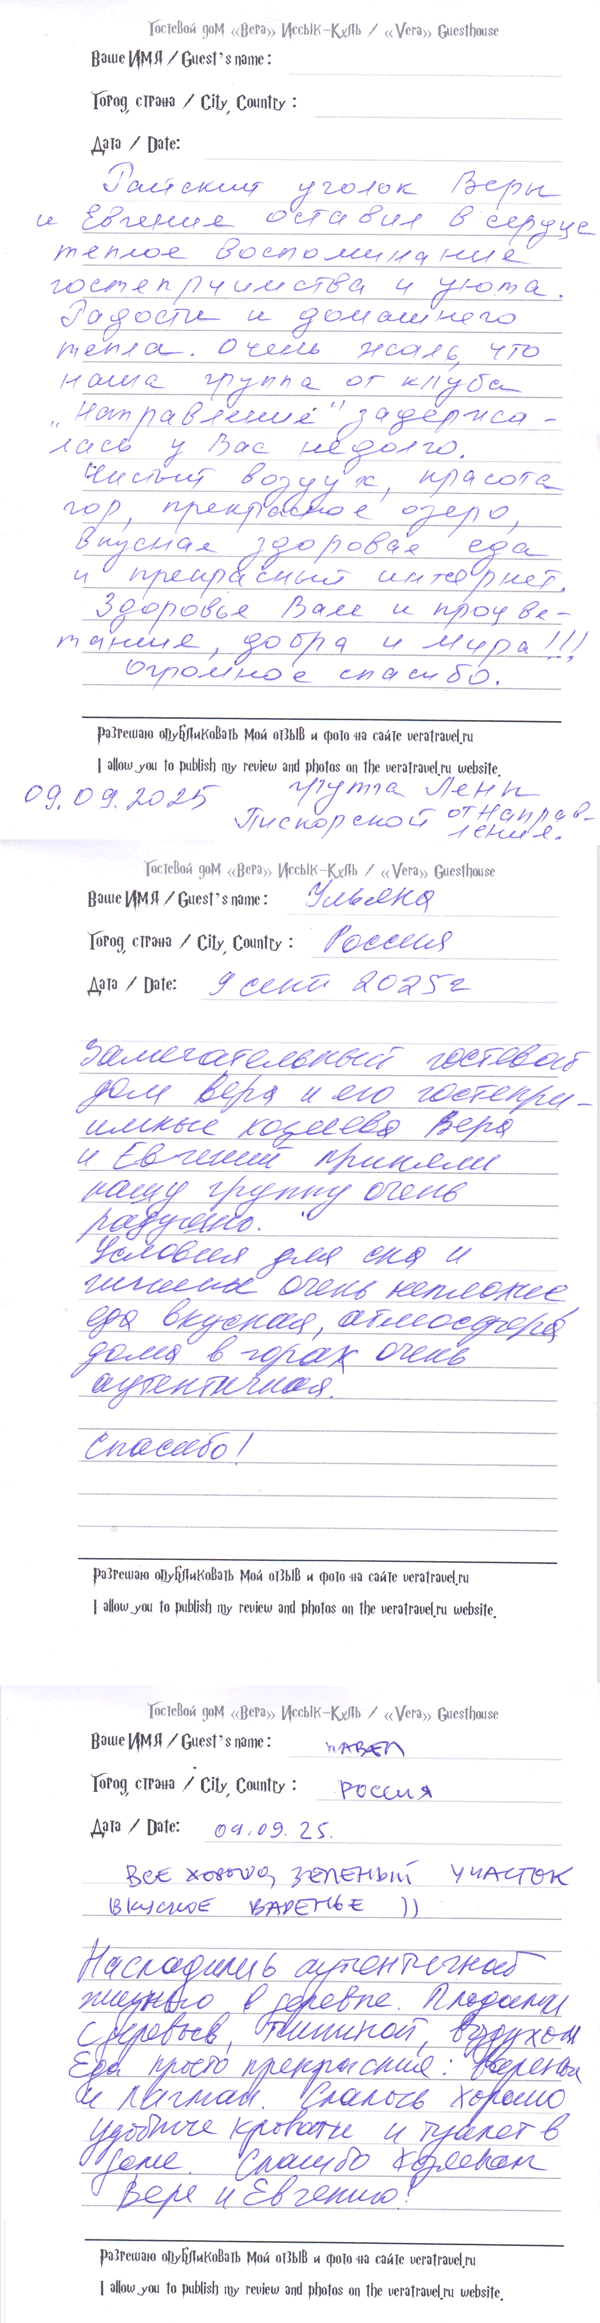 Гостевой дом «Вера» Иссык-Куль / «Vera» Guesthouse
Ваше ИМЯ / Guest's name:
Город, страна / City, Country :
Дата / Date:
Райский уголок Веры
и Евгения оставил в сердце
теплое воспоминание
гостеприимства и уюта.
Радости и домашнего
тепла. Очень жаль, что
наша группа от клуба
„Направление" задержа-
лась у Вас недолго.
Чистый воздух, красота
гор, прекрасное озеро,
вкусная здоровая еда
и прекрасный интернет.
Здоровья Вам и процве-
тания, добра и мира!!!
Огромное спасибо.
Разрешаю опубликовать мой отзыв и фото на сайте veratravel.ru
I allow you to publish my review and photos on the veratravel.ru website.
09.09.2025 группа Лены
Пискорской от Направ-
ления.
Гостевой дом «Вера» Иссык-Куль / «Vera» Guesthouse
Ваше ИМЯ / Guest's name: Ульяна
Город, страна / City, Country : Россия
Дата / Date: 9 сент 2025г
Замечательный гостевой
дом Вера и его гостепри-
имные хозяева Вера
и Евгений приняли
нашу группу очень
радушно.
Условия для сна и
гигиены очень неплохие
еда вкусная, атмосфера
дома в горах очень
аутентичная.
Спасибо!
Разрешаю опубликовать мой отзыв и фото на сайте veratravel.ru
I allow you to publish my review and photos on the veratravel.ru website.
Гостевой дом «Вера» Иссык-Куль / «Vera» Guesthouse
Ваше ИМЯ / Guest's name: ПАВЕЛ
Город, страна / City, Country : РОССИЯ
Дата / Date: 09.09.25.
ВСЕ ХОРОШО, ЗЕЛЕНЫЙ УЧАСТОК
ВКУСНОЕ ВАРЕНЬЕ ))
Насладились аутентичной
жизнью в деревне. Плодами
с деревьев, тишиной, воздухом
Еда просто прекрасная: варенья
и лагман. Спалось хорошо
удобные кровати и туалет в
доме. Спасибо хозяевам
Вере и Евгению!
Разрешаю опубликовать мой отзыв и фото на сайте veratravel.ru
I allow you to publish my review and photos on the veratravel.ru website.